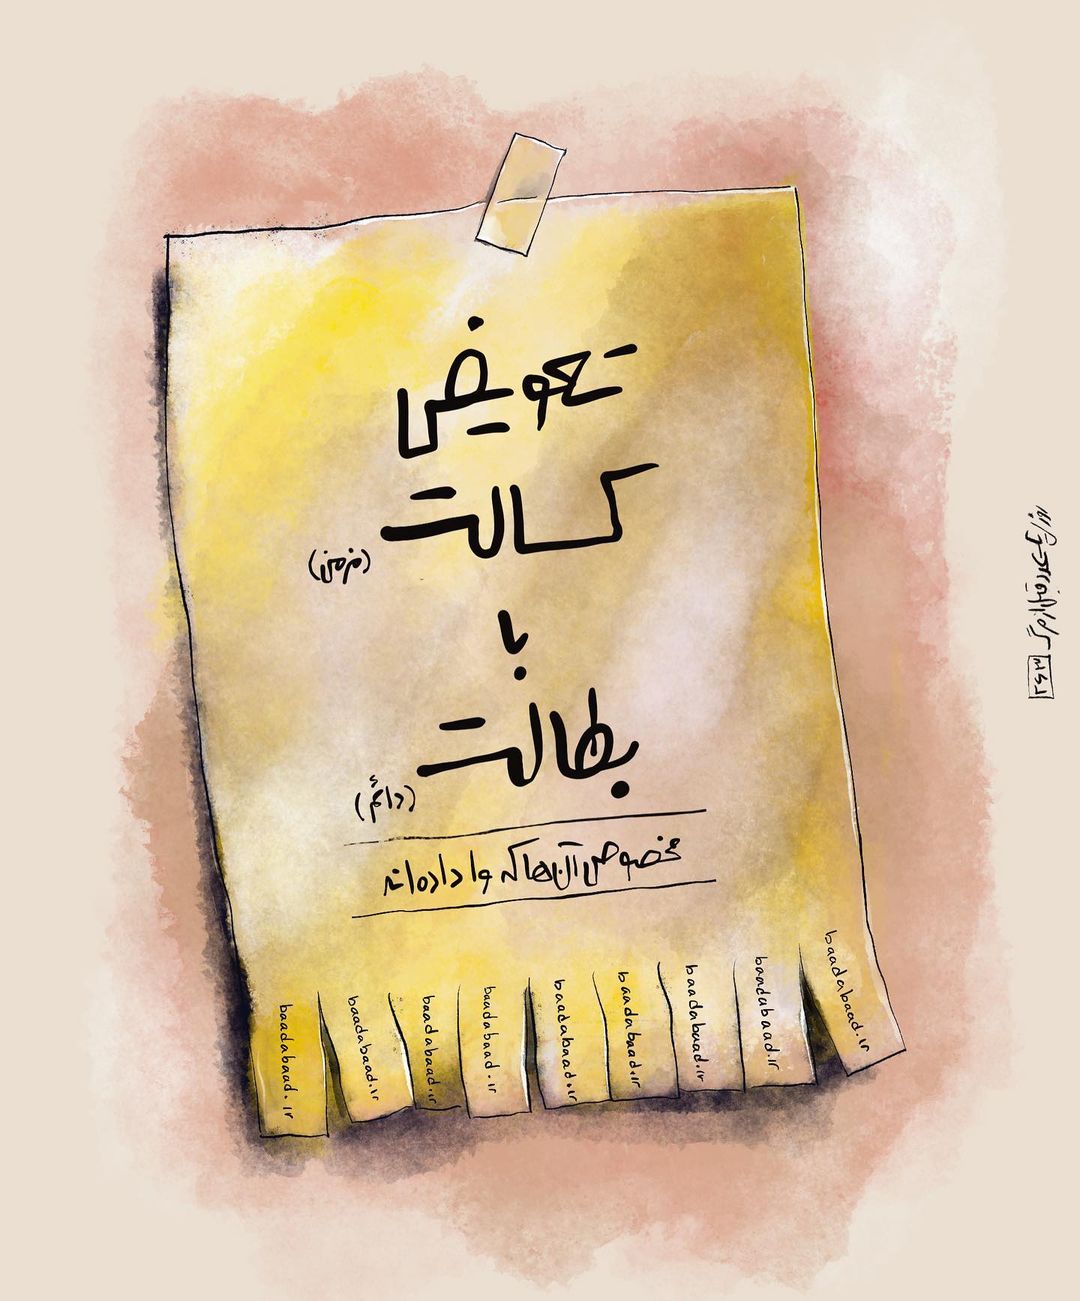 تعویض
کسالت
(مزمن)
با
بطالت
(دائم)
مخصوص آن‌ها که وا داده‌اند
baadabaad.ir
baadabaad.ir
baadabaad.ir
baadabaad.ir
baadabaad.ir
baadabaad.ir
baadabaad.ir
baadabaad.ir
baadabaad.ir